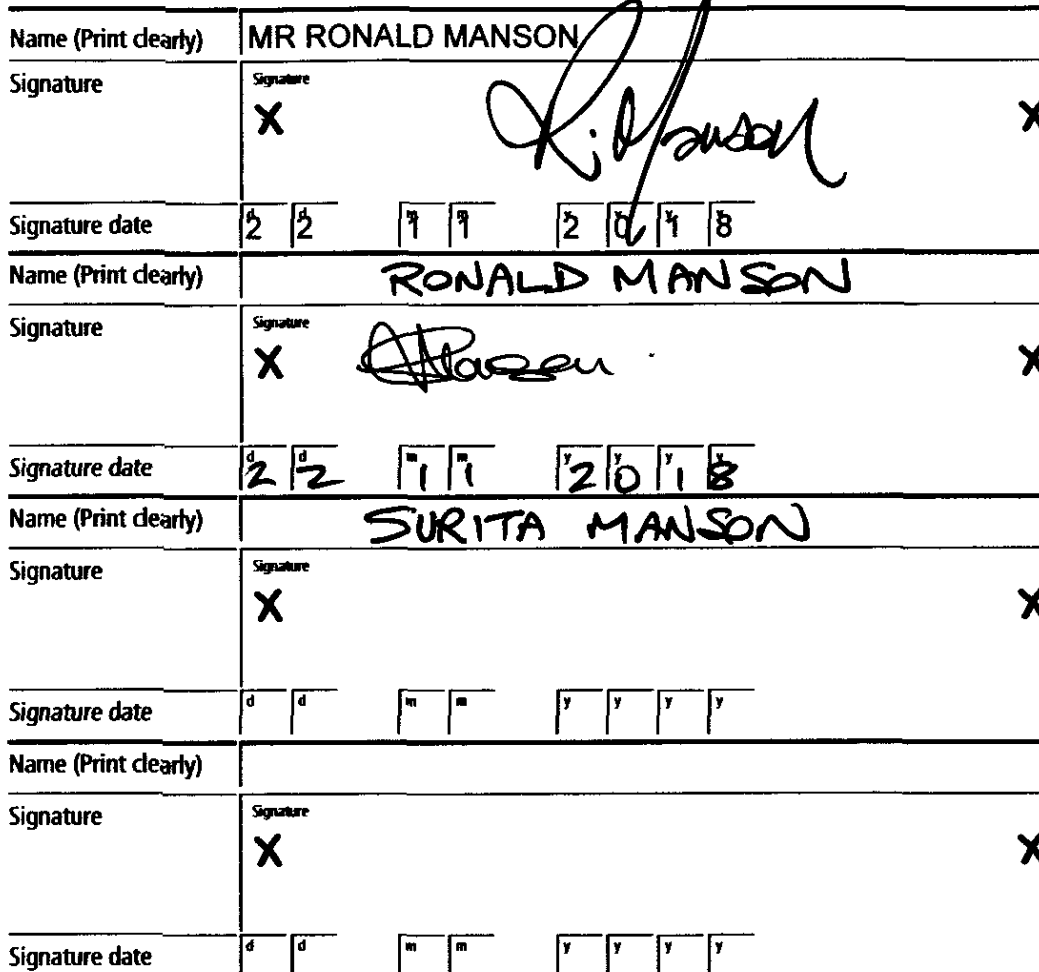 Name (Print clearly) MR RONALD MANSON
Signature Signature
X R. Manson X
Signature date d2 d2 m1 m1 y2 y0 y1 y8
Name (Print clearly) RONALD MANSON
Signature Signature
X Manson X
Signature date d2 d2 m1 m1 y2 y0 y1 y8
Name (Print clearly) SURITA MANSON
Signature Signature
X X
Signature date d d m m y y y y
Name (Print clearly)
Signature Signature
X X
Signature date d d m m y y y y